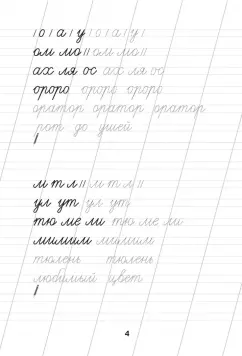 / о / а / у / о / а / у /
ом мо // ом мо //
ах ля ос ах ля ос
ороро ороро ороро
оратор оратор оратор
рот до ушей
м т л // м т л //
ул ут ул ут
тю ме ли тю ме ли
мишим мишим
тюлень тюлень
любимый цвет
4